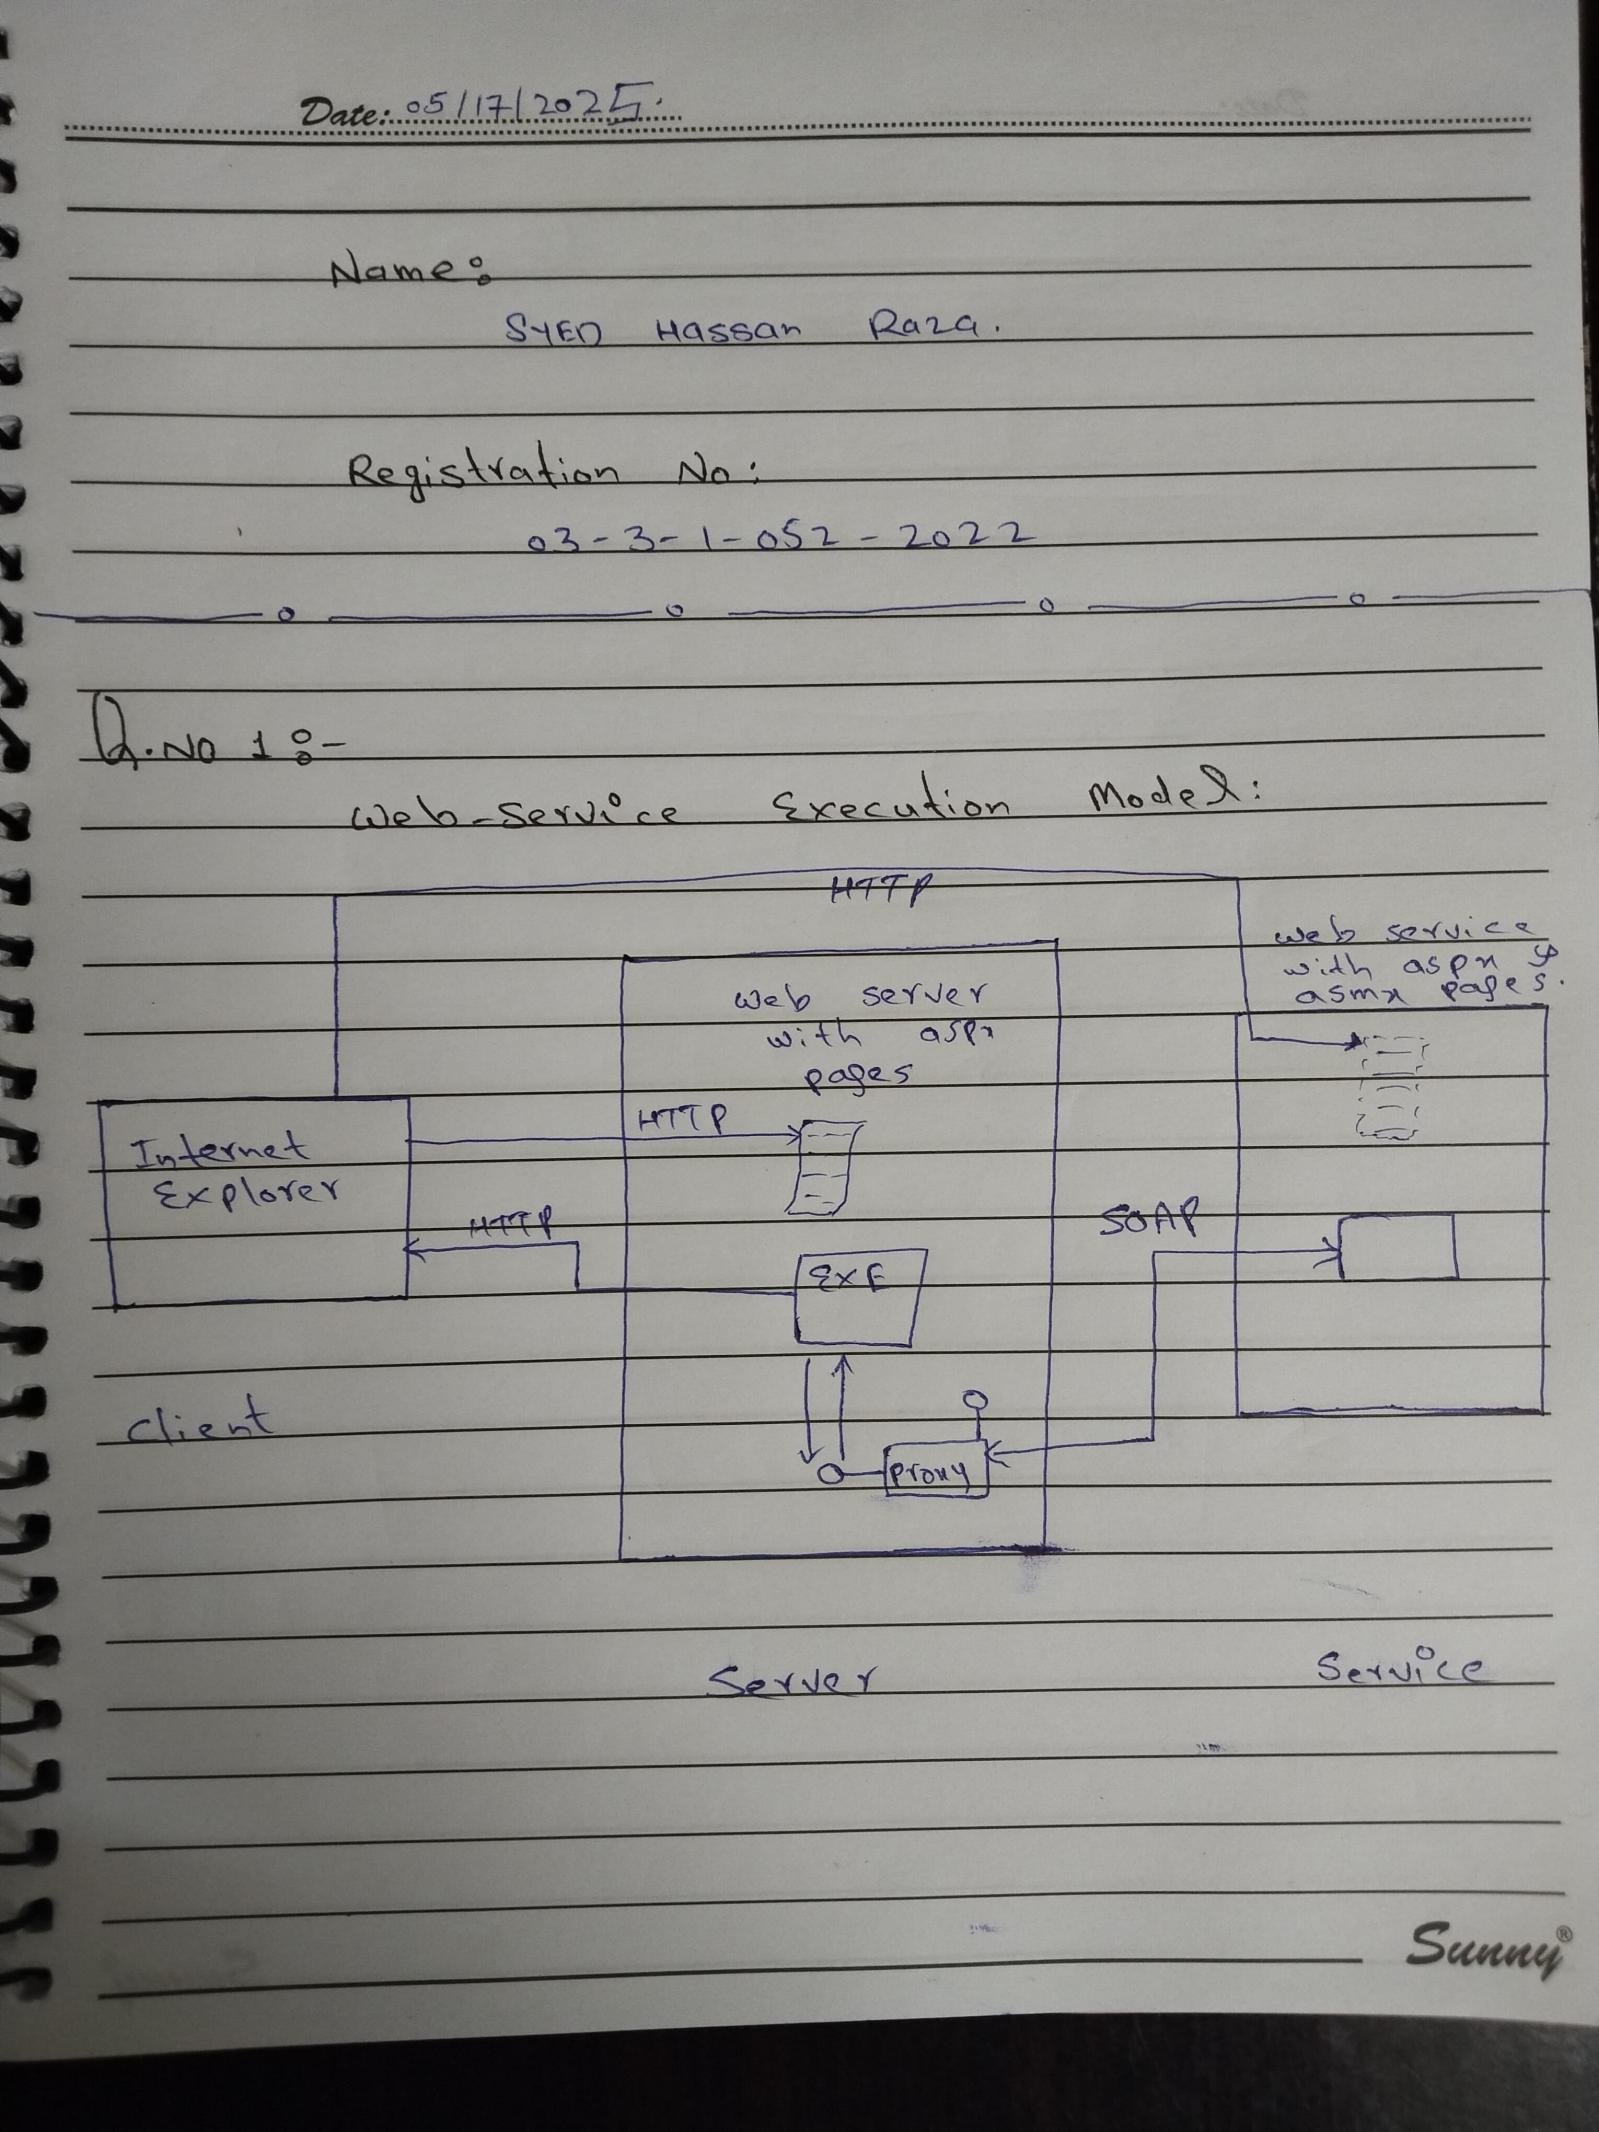 Date: 05/17/2025.
Name:
SYED Hassan Raza.
Registration No:
03-3-1-052-2022
Q.No 1:-
Web-Service Execution Model:
HTTP
web service
with aspx &
asmx pages.
web server
with aspx
pages
HTTP
Internet
Explorer
HTTP
SOAP
EXE
Client
Proxy
Server
Service
Sunny®